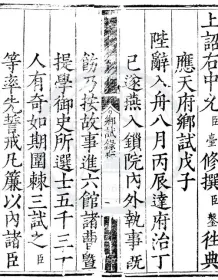 上詔右中允臣壹修撰臣鏊往典
應天府鄉試戊子
陛辭入舟八月丙辰達府治丁
巳遂燕入鎖院內外執事既
鄉試錄
飭乃按故事進六館諸曹曁
提學御史所選士五千三十
人有奇如期圍棘三試之臣
等率先誓戒凡簾以內諸臣